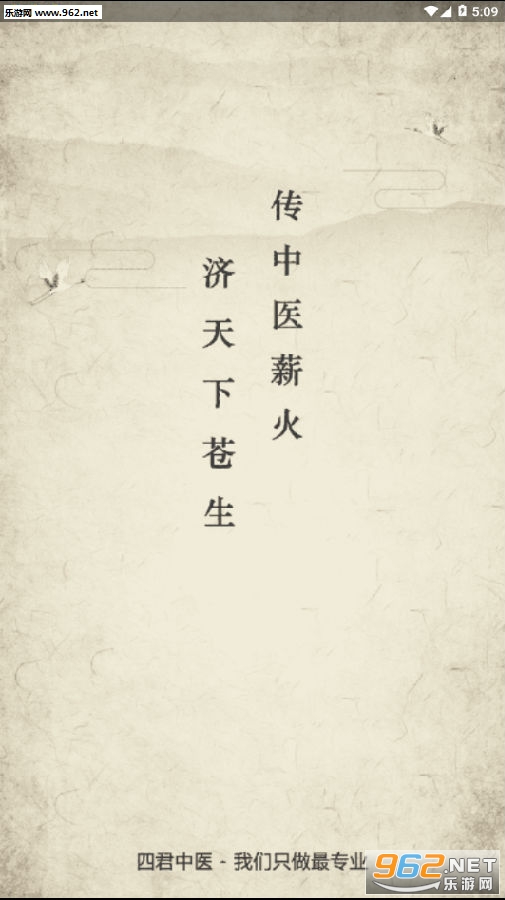 乐游网 www.962.net
5:09
传中医薪火
济天下苍生
四君中医 - 我们只做最专业
962.NET
乐游网